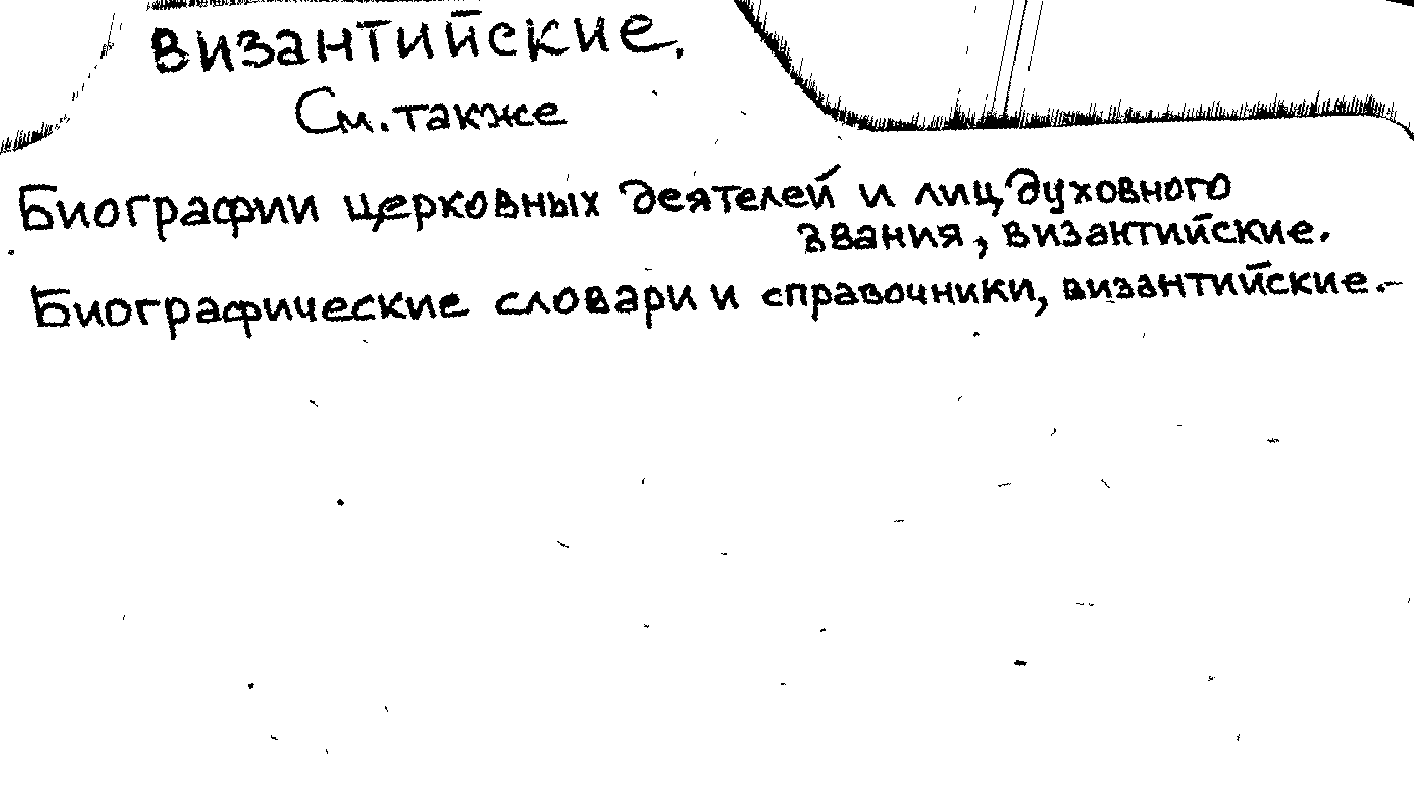 византийские.
См. также
Биографии церковных деятелей и лиц духовного
звания, византийские.
Биографические словари и справочники, византийские.-